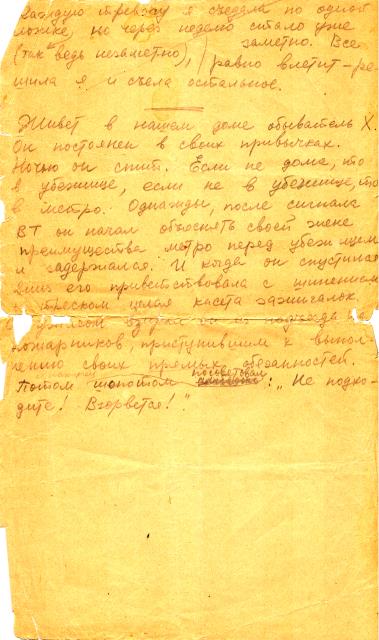 каждую тревогу я съедала по одной
ложке, но через неделю стало уже
(так ведь незаметно), заметно. Все
равно влетит - ре-
шила я и съела остальное.
Живет в нашем доме обыватель X.
Он постоянен в своих привычках.
Ночью он спит. Если не дома, то
в убежище, если не в убежище, то
в метро. Однажды, после сигнала
ВТ он начал объяснять своей жене
преимущества метро перед убежищем
и задержался. И когда он спустился
вниз его приветствовала с шипением
и треском целая каста зажигалок.
из подъезда и
пожарников, приступившим к выпол-
нению своих прямых обязанностей.
Потом шопотом посоветовал: "Не подхо-
дите! Взорвется!"